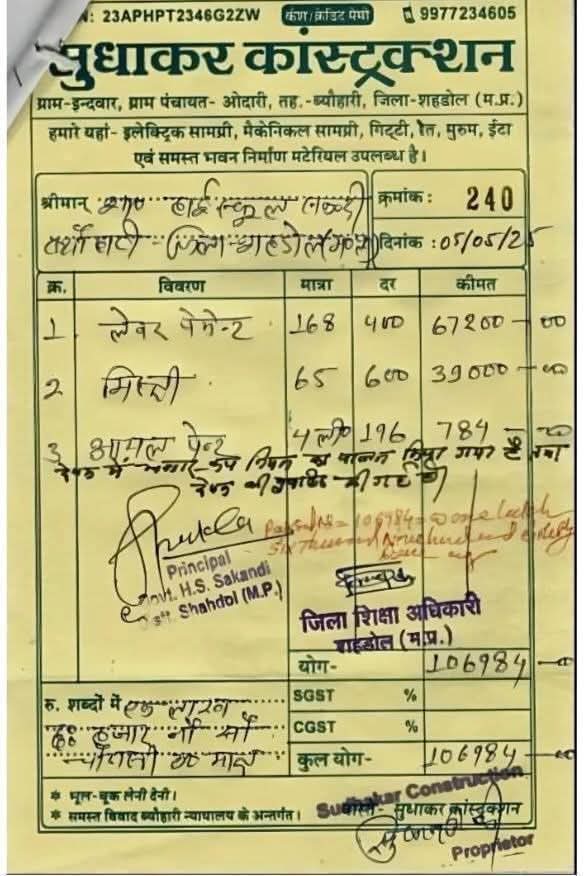 N: 23APHPT2346G2ZW कैश/क्रेडिट मेमो 9977234605
सुधाकर कांस्ट्रक्शन
ग्राम-इन्दवार, ग्राम पंचायत- ओदारी, तह.-ब्यौहारी, जिला-शहडोल (म.प्र.)
हमारे यहां- इलेक्ट्रिक सामग्री, मैकेनिकल सामग्री, गिट्टी, रेत, मुरुम, ईटा
एवं समस्त भवन निर्माण मटेरियल उपलब्ध है।
श्रीमान् हाई स्कूल क्रमांक: 240
दिनांक : 05/05/25
क्र. विवरण मात्रा दर कीमत
1 लेवर पेमेन्ट 168 400 67200-00
2 मिस्त्री 65 600 39000-00
3 आयल पेन्ट 4 ली० 196 784
नियम का पालन किया गया है तथा
की गई है
Passed Rs = 106984 = one lakh
Six thousand Nine hundred eighty
four
Principal
Govt. H.S. Sakandi
Distt. Shahdol (M.P.)
जिला शिक्षा अधिकारी
शहडोल (म.प्र.)
योग- 106984-00
रु. शब्दों में एक लाख SGST %
छः हजार नौ सौ CGST %
चौरासी रु० मात्र कुल योग- 106984-00
* भूल-चूक लेनी देनी।
* समस्त विवाद ब्यौहारी न्यायालय के अन्तर्गत।
Sudhakar Construction
वास्ते- सुधाकर कांस्ट्रक्शन
Proprietor